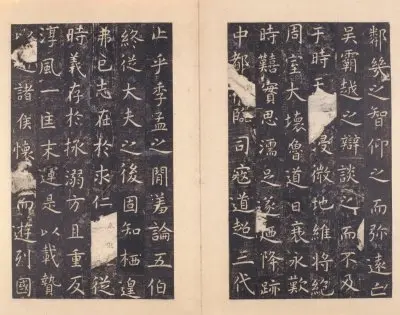 鄰幾之智仰之而弥遠
吳霸越之辯談之而不及
于時天浸微地維將絕
周室大壞魯道日衰永歎
時囏實思濡足遂迺降跡
中都臨司寇道超三代
止乎季孟之閒羞論五伯
終從大夫之後固知栖遑
弗已志在於求仁從
時義存於拯溺方且重反
淳風一匡末運是以載贄
以諸侯懷而遊列國